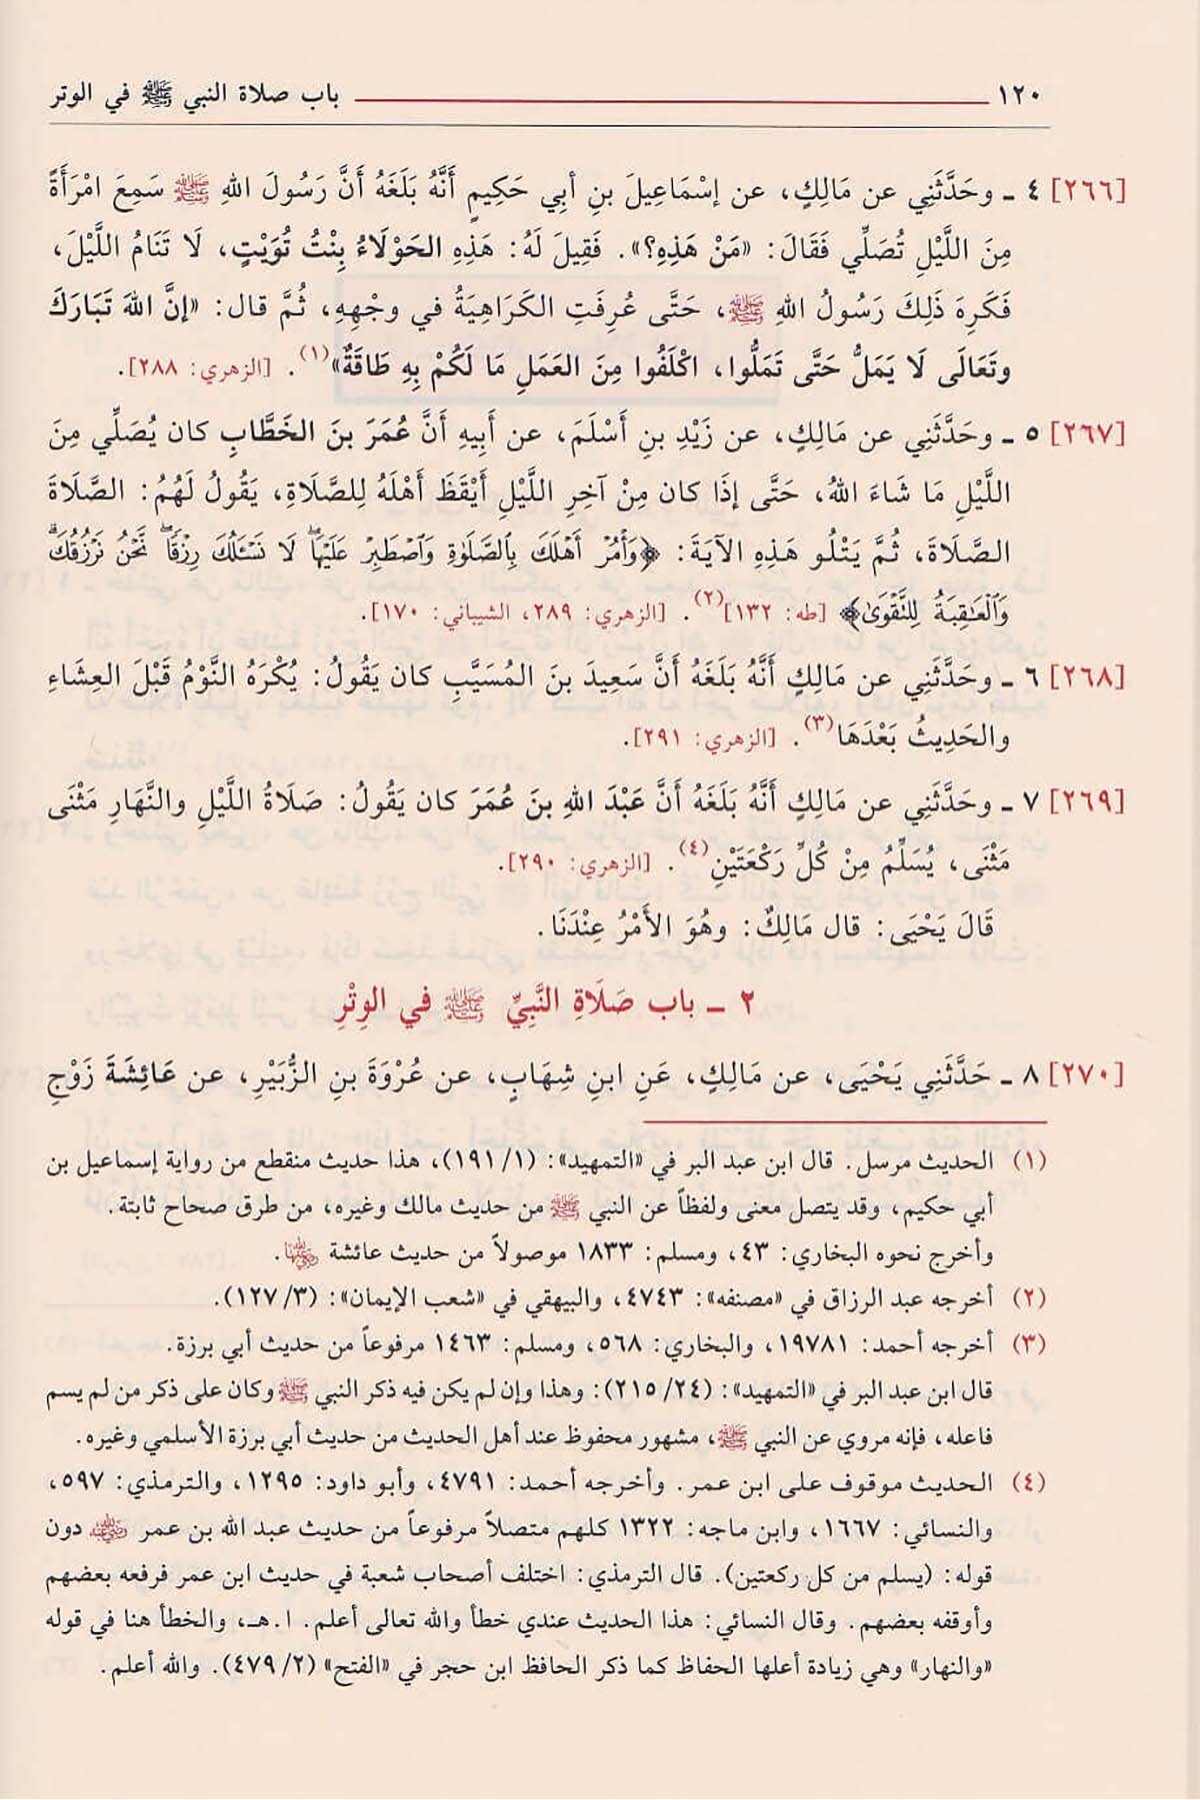 ١٢٠ باب صلاة النبي ﷺ في الوتر
[٢٦٦] ٤ ـ وحَدَّثَنِي عن مَالِكٍ، عن إسْمَاعِيلَ بنِ أبِي حَكِيمٍ أَنَّهُ بَلَغَهُ أَنَّ رَسُولَ اللهِ ﷺ سَمِعَ امْرَأَةً
مِنَ اللَّيْلِ تُصَلِّي فَقَالَ: «مَنْ هَذِهِ؟». فَقِيلَ لَهُ: هَذِهِ الحَوْلَاءُ بِنْتُ تُوَيْتٍ، لَا تَنَامُ اللَّيْلَ،
فَكَرِهَ ذَلِكَ رَسُولُ اللهِ ﷺ، حَتَّى عُرِفَتِ الكَرَاهِيَةُ في وجْهِهِ، ثُمَّ قال: «إنَّ اللهَ تَبَارَكَ
وتَعَالَى لَا يَمَلُّ حَتَّى تَمَلُّوا، اكْلَفُوا مِنَ العَمَلِ مَا لَكُمْ بِهِ طَاقَةٌ»(١). [الزهري: ٢٨٨].
[٢٦٧] ٥ ـ وحَدَّثَنِي عن مَالِكٍ، عن زَيْدِ بنِ أَسْلَمَ، عن أَبِيهِ أَنَّ عُمَرَ بنَ الخَطَّابِ كان يُصَلِّي مِنَ
اللَّيْلِ مَا شَاءَ اللهُ، حَتَّى إذَا كان مِنْ آخِرِ اللَّيْلِ أَيْقَظَ أَهْلَهُ لِلصَّلَاةِ، يَقُولُ لَهُمُ: الصَّلَاةَ
الصَّلَاةَ، ثُمَّ يَتْلُو هَذِهِ الآيَةَ: ﴿وَأْمُرْ أَهْلَكَ بِالصَّلَوٰةِ وَاصْطَبِرْ عَلَيْهَا ۖ لَا نَسْـَٔلُكَ رِزْقًا ۖ نَّحْنُ نَرْزُقُكَ ۗ
وَالْعَـٰقِبَةُ لِلتَّقْوَىٰ﴾ [طه: ١٣٢](٢). [الزهري: ٢٨٩، الشيباني: ١٧٠].
[٢٦٨] ٦ ـ وحَدَّثَنِي عن مَالِكٍ أَنَّهُ بَلَغَهُ أَنَّ سَعِيدَ بنَ المُسَيَّبِ كان يَقُولُ: يُكْرَهُ النَّوْمُ قَبْلَ العِشَاءِ
والحَدِيثُ بَعْدَهَا(٣). [الزهري: ٢٩١].
[٢٦٩] ٧ ـ وحَدَّثَنِي عن مَالِكٍ أَنَّهُ بَلَغَهُ أَنَّ عَبْدَ اللهِ بنَ عُمَرَ كان يَقُولُ: صَلَاةُ اللَّيْلِ والنَّهَارِ مَثْنَى
مَثْنَى، يُسَلِّمُ مِنْ كُلِّ رَكْعَتَيْنِ(٤). [الزهري: ٢٩٠].
قَالَ يَحْيَى: قال مَالِكٌ: وهُوَ الأَمْرُ عِنْدَنَا.
٢ ـ باب صَلَاةِ النَّبِيِّ ﷺ في الوِتْرِ
[٢٧٠] ٨ ـ حَدَّثَنِي يَحْيَى، عن مَالِكٍ، عَنِ ابنِ شِهَابٍ، عن عُرْوَةَ بنِ الزُّبَيْرِ، عن عَائِشَةَ زَوْجِ
(١) الحديث مرسل. قال ابن عبد البر في «التمهيد»: (١/ ١٩١)، هذا حديث منقطع من رواية إسماعيل بن
أبي حكيم، وقد يتصل معنى ولفظاً عن النبي ﷺ من حديث مالك وغيره، من طرق صحاح ثابتة.
وأخرج نحوه البخاري: ٤٣، ومسلم: ١٨٣٣ موصولاً من حديث عائشة رضي الله عنها.
(٢) أخرجه عبد الرزاق في «مصنفه»: ٤٧٤٣، والبيهقي في «شعب الإيمان»: (٣/ ١٢٧).
(٣) أخرجه أحمد: ١٩٧٨١، والبخاري: ٥٦٨، ومسلم: ١٤٦٣ مرفوعاً من حديث أبي برزة.
قال ابن عبد البر في «التمهيد»: (٢٤/ ٢١٥): وهذا وإن لم يكن فيه ذكر النبي ﷺ وكان على ذكر من لم يسم
فاعله، فإنه مروي عن النبي ﷺ، مشهور محفوظ عند أهل الحديث من حديث أبي برزة الأسلمي وغيره.
(٤) الحديث موقوف على ابن عمر. وأخرجه أحمد: ٤٧٩١، وأبو داود: ١٢٩٥، والترمذي: ٥٩٧،
والنسائي: ١٦٦٧، وابن ماجه: ١٣٢٢ كلهم متصلاً مرفوعاً من حديث عبد الله بن عمر رضي الله عنه دون
قوله: (يسلم من كل ركعتين). قال الترمذي: اختلف أصحاب شعبة في حديث ابن عمر فرفعه بعضهم
وأوقفه بعضهم. وقال النسائي: هذا الحديث عندي خطأ والله تعالى أعلم. ا.هـ، والخطأ هنا في قوله
«والنهار» وهي زيادة أعلها الحفاظ كما ذكر الحافظ ابن حجر في «الفتح» (٢/ ٤٧٩). والله أعلم.